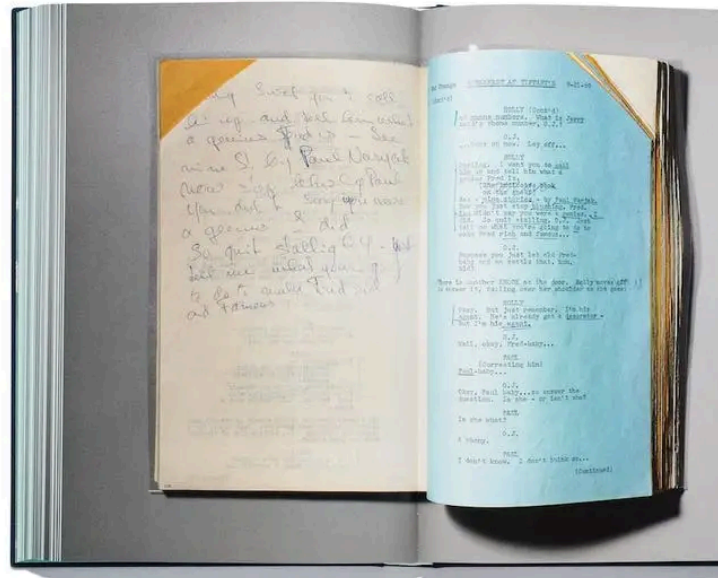 you to call
him up and tell him what
a genius Fred is — See
nine S. by Paul Varjak
now stop
You didn't say you were
a genius — I did
So quit stalling O J — just
tell me what your going
to do to make Fred rich
and famous
BREAKFAST AT TIFFANY'S
(Cont'd)
HOLLY (Cont'd)
phone numbers. What is Jerry
phone number, O.J.?
O.J.
Lay off...
HOLLY
Darling. I want you to call
him up and tell him what a
genius Fred is.
on the desk)
nine stories - by Paul Varjak.
Now just stop blushing, Fred.
You didn't say you were a genius. I
did. So quit stalling, O.J. Just
tell me what you're going to do to
make Fred rich and famous...
O.J.
Suppose you just let old Fred-
baby and me settle that, huh,
kid?
There is another KNOCK at the door. Holly moves off
to answer it, calling over her shoulder as she goes:
HOLLY
Okay. But just remember. I'm his
agent. He's already got a decorator -
but I'm his agent.
O.J.
Well, okay, Fred-baby...
PAUL
(Correcting him)
Paul-baby...
O.J.
Okay, Paul baby...so answer the
question. Is she - or isn't she?
PAUL
Is she what?
O.J.
A phony.
PAUL
I don't know. I don't think so...
(Continued)